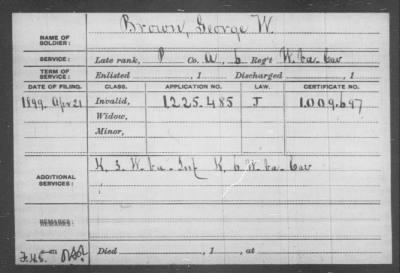 NAME OF SOLDIER: Brown, George W.
SERVICE: Late rank, P Co. A, 6 Reg't W. Va. Cav
TERM OF SERVICE: Enlisted , 1 Discharged , 1
DATE OF FILING. CLASS. APPLICATION NO. LAW. CERTIFICATE NO.
1899 Apr 21 Invalid, 1.225.485 J 1.009.697
Widow,
Minor,
ADDITIONAL SERVICES: K. 3. W. Va. Inf K. 6 W. Va. Cav
REMARKS:
Died , 1 , at